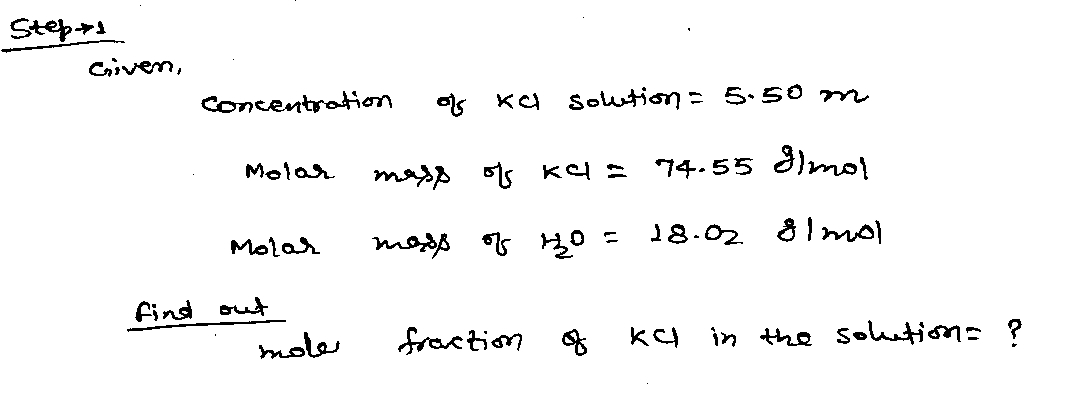 Step→1
Given,
Concentration of KCl solution = 5.50 m
Molar mass of KCl = 74.55 g/mol
Molar mass of H₂O = 18.02 g/mol
find out
mole fraction of KCl in the solution = ?